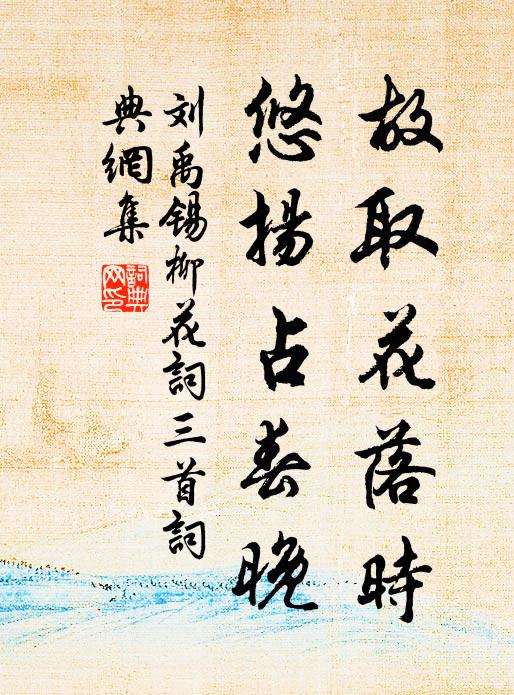 故取花落時
悠揚占春晚
刘禹锡柳花詞三首詞
典網集
詞典
网印